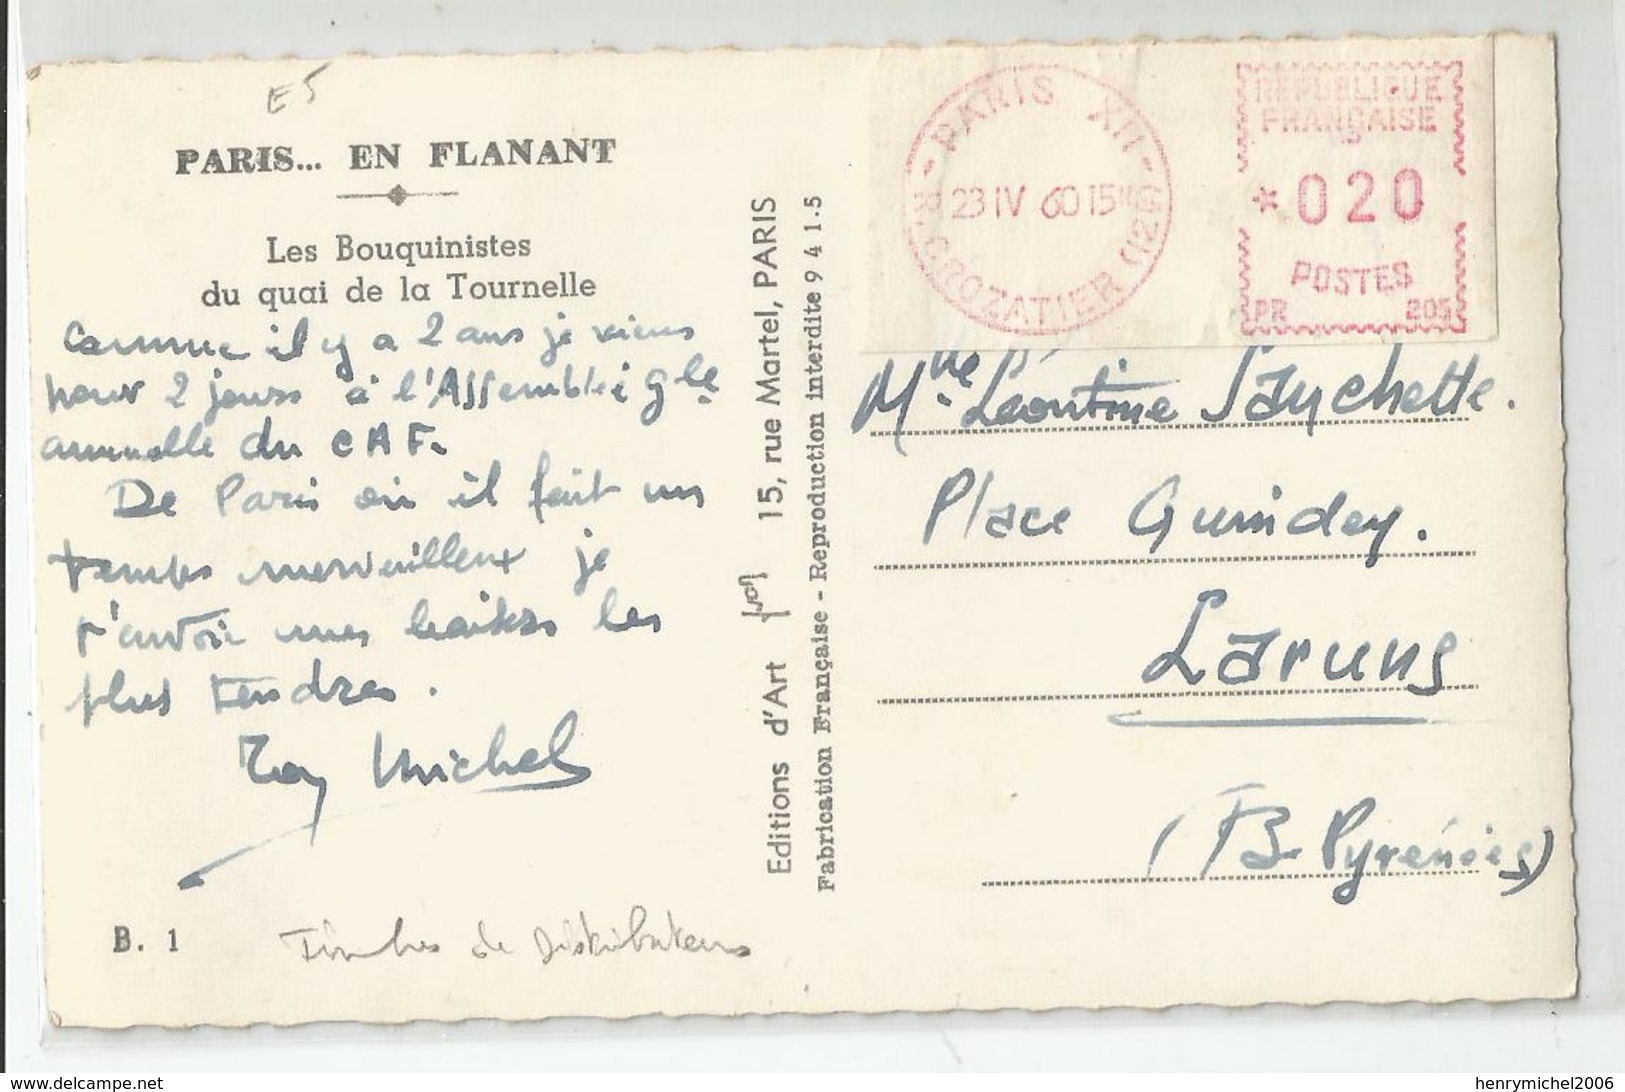 E5
PARIS... EN FLANANT
Les Bouquinistes
du quai de la Tournelle
Comme il y a 2 ans je viens
pour 2 jours à l'Assemblée gle
annuelle du CAF.
De Paris où il fait un
temps merveilleux je
t'envoie mes baisers les
plus tendres.
Michel
B. 1
Timbres de Distributeurs
Editions d'Art 15, rue Martel, PARIS
Fabrication Française - Reproduction interdite 9 4 1-5
PARIS XII
23 IV 60 15H
R. CROZATIER (12e)
REPUBLIQUE
FRANÇAISE
*020
POSTES
PR 205
Mme Léontine Sanchette.
Place Guindey.
Laruns
(B-Pyrénées)
delcampe.net
henrymichel2006